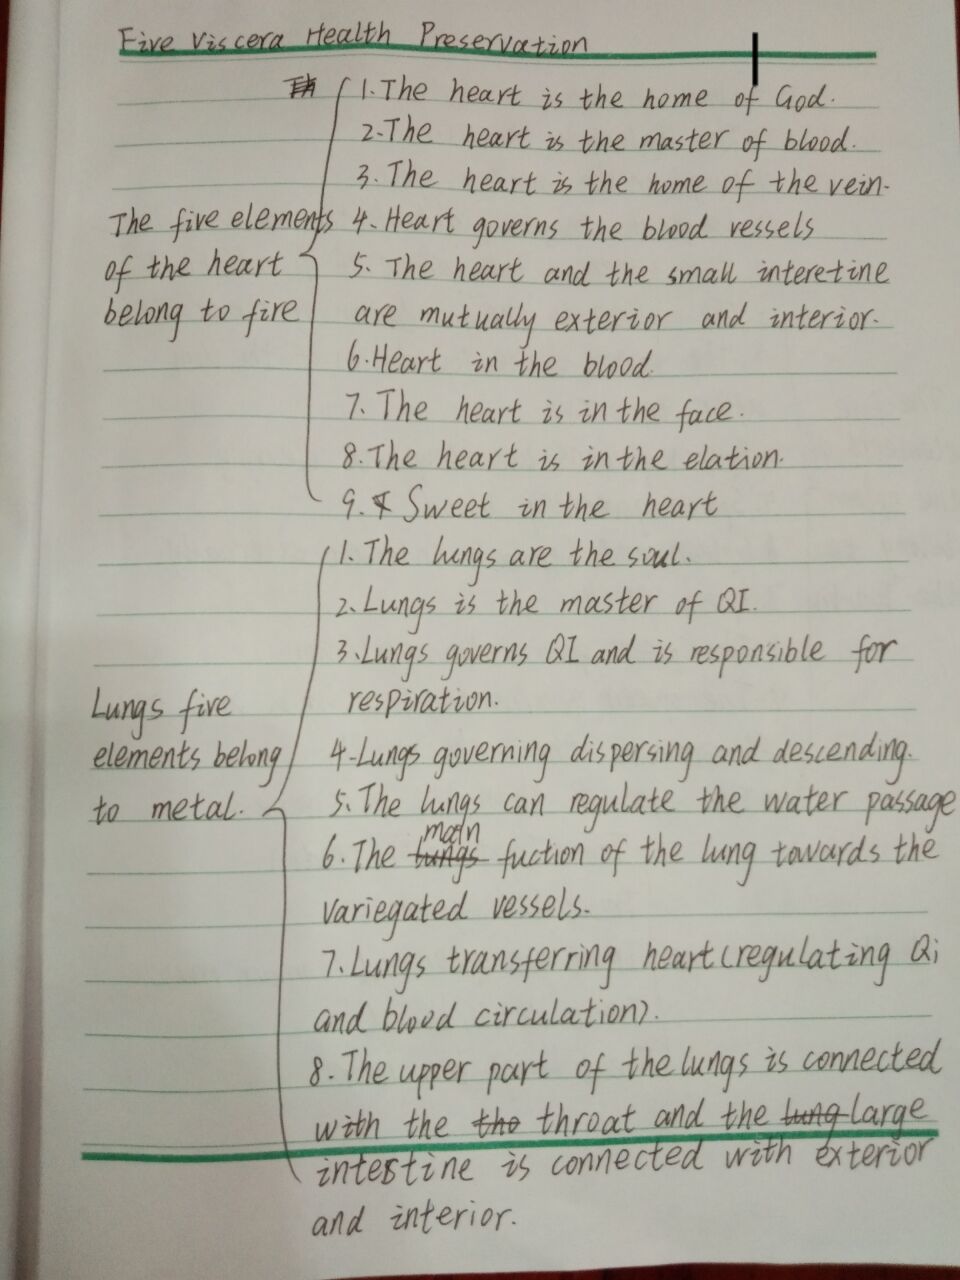 Five Viscera Health Preservation
1. The heart is the home of God.
2. The heart is the master of blood.
3. The heart is the home of the vein.
The five elements
of the heart
belong to fire
4. Heart governs the blood vessels
5. The heart and the small interetine
are mutually exterior and interior.
6. Heart in the blood.
7. The heart is in the face.
8. The heart is in the elation.
9. Sweet in the heart
Lungs five
elements belong
to metal.
1. The lungs are the soul.
2. Lungs is the master of QI.
3. Lungs governs QI and is responsible for
respiration.
4. Lungs governing dispersing and descending.
5. The lungs can regulate the water passage
6. The main fuction of the lung towards the
variegated vessels.
7. Lungs transferring heart (regulating Qi
and blood circulation).
8. The upper part of the lungs is connected
with the throat and the large
intestine is connected with exterior
and interior.